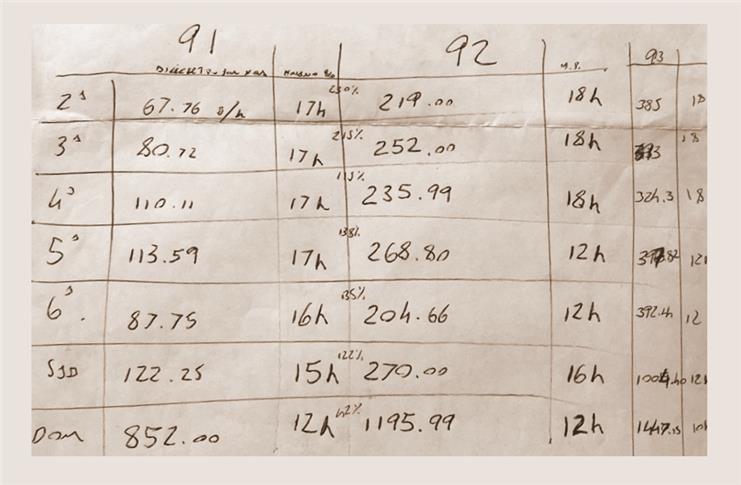 91 92 93
2ª 67.76 s/h 17h 230% 219.00 18h 385 18
3ª 80.72 17h 215% 252.00 18h 18
4ª 110.11 17h 113% 235.99 18h 324.3 18
5ª 113.59 17h 138% 268.80 12h 12h
6ª. 87.75 16h 135% 204.66 12h 392.4 12
SSD 122.25 15h 122% 270.00 16h 12h
Dom 852.00 12h 42% 1195.99 12h 1447.15 10h